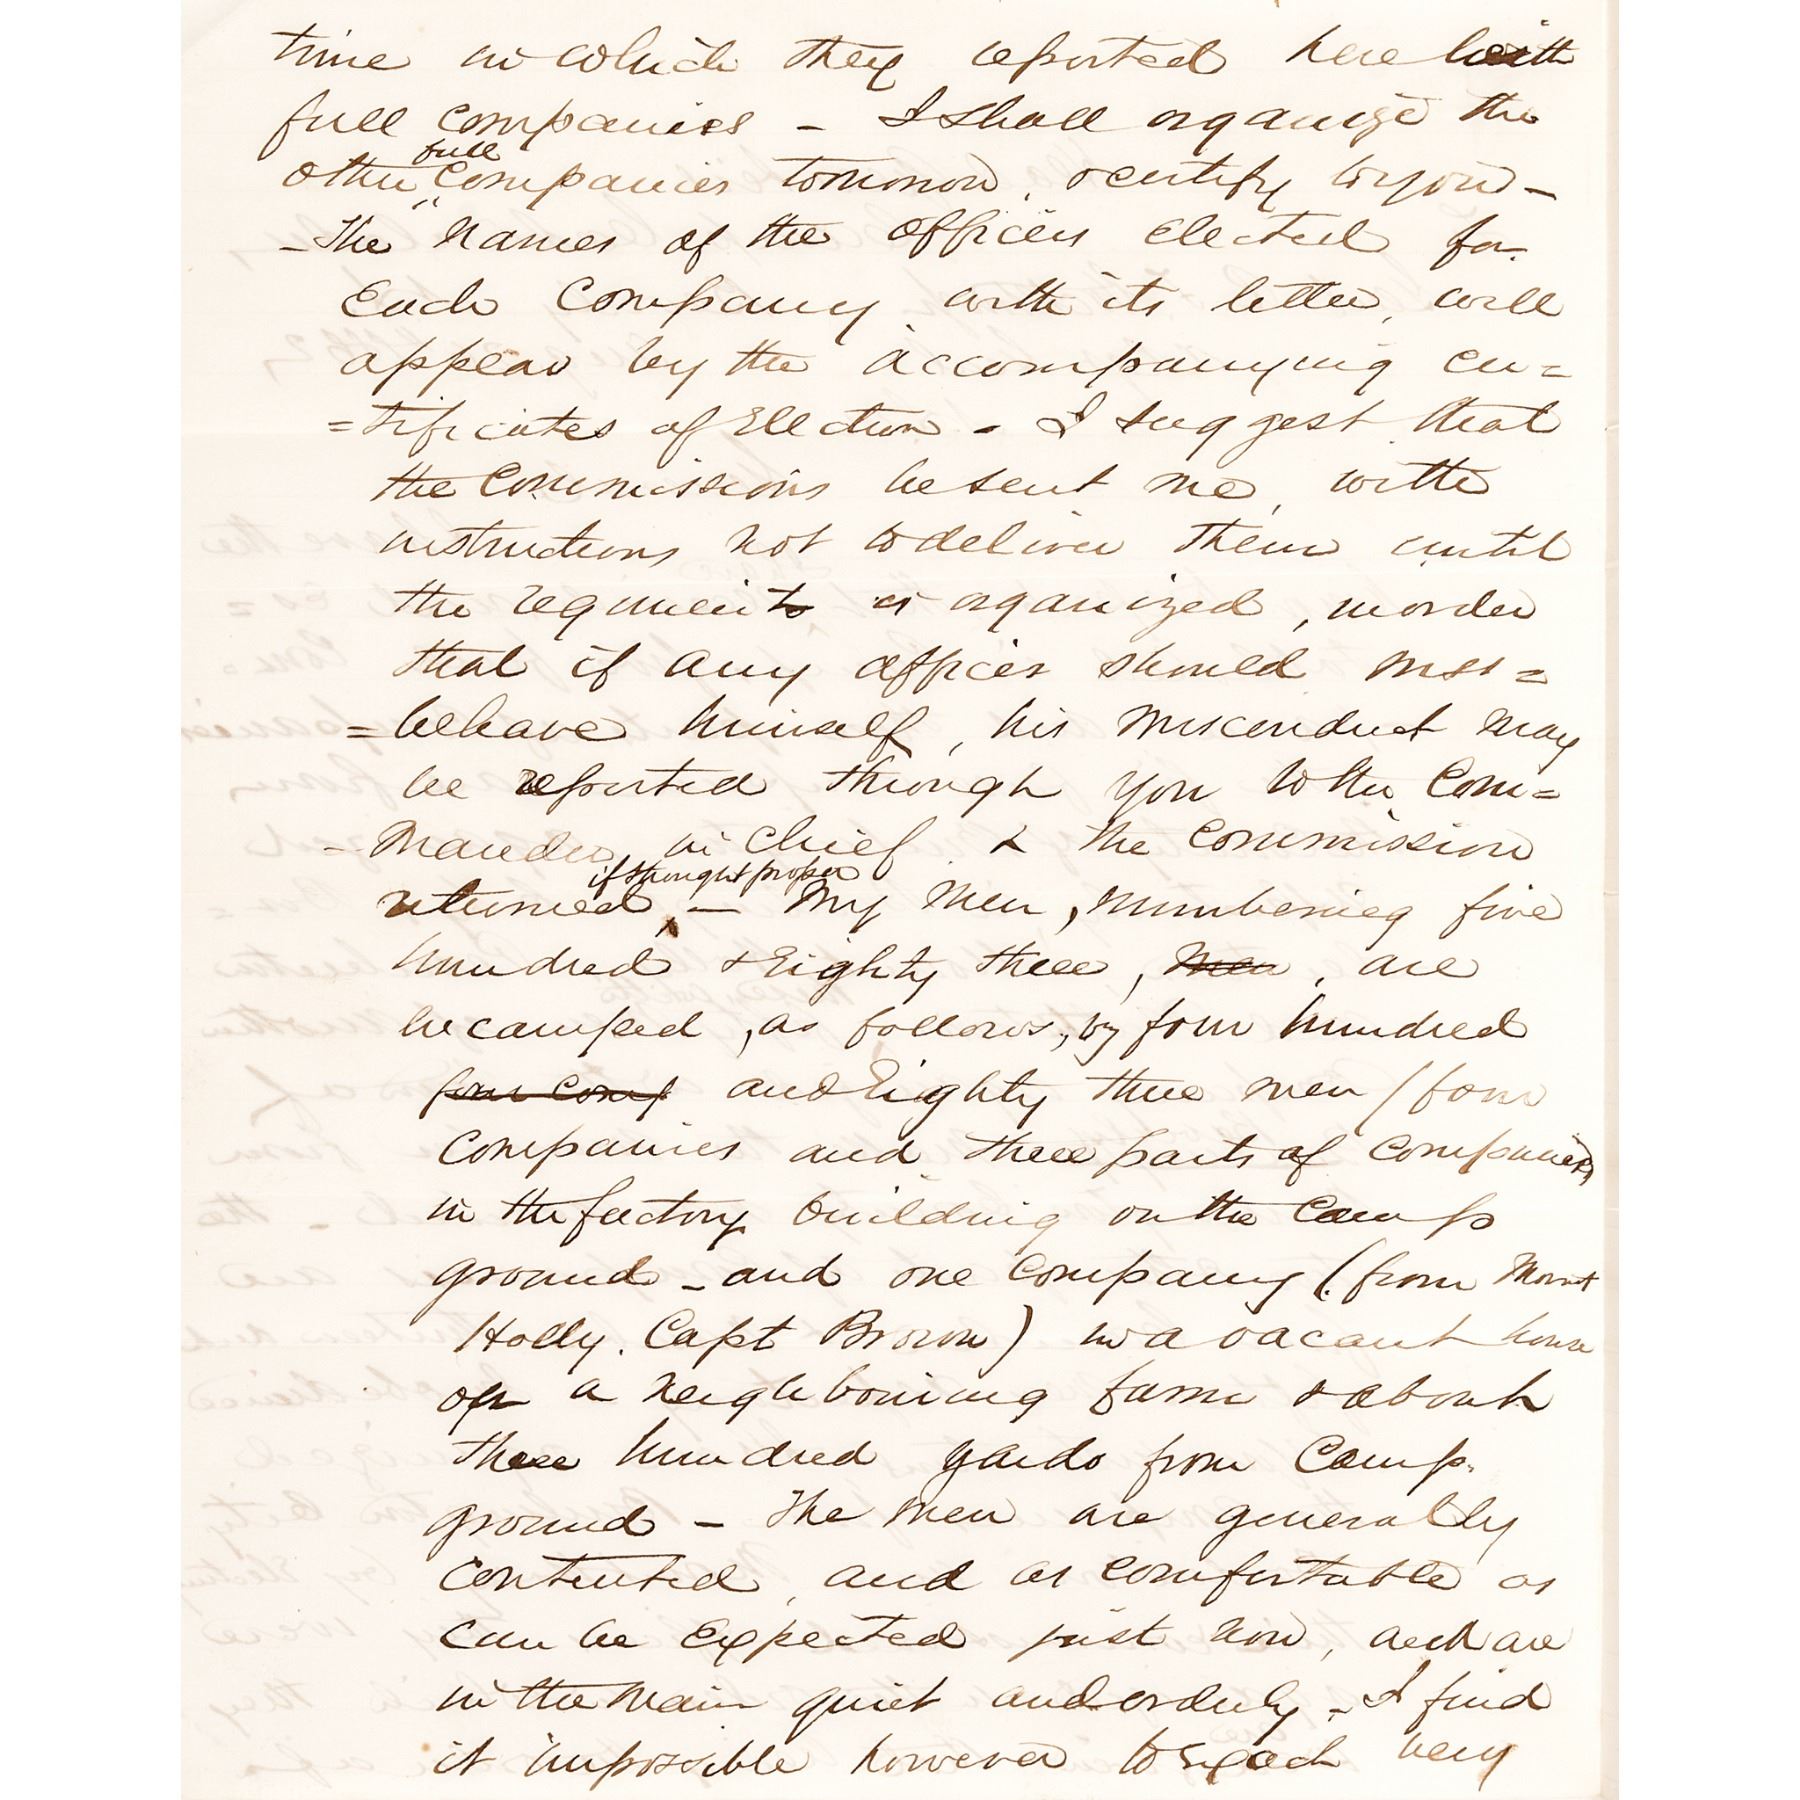 time in which they reported here with
full companies - I shall organize the
full
other companies tomorrow, & certify to you -
- The names of the officers elected for
Each Company, with its letter, will
appear by the accompanying cer=
=tificates of Election - I suggest that
the Commissions be sent me, with
instructions not to deliver them until
the regiment is organized, in order
that if any officer should mis=
=behave himself, his misconduct may
be reported through you to the Com=
-mander in Chief & the Commission
if thought proper
returned, - My men, numbering five
hundred & Eighty three, men, are
encamped, as follows; by four hundred
four comp and Eighty three men (four
Companies and three parts of Companies)
in the factory building on the Camp
ground - and one Company (from Mount
Holly. Capt Brown) in a vacant house
on a neighboring farm & about
three hundred yards from Camp
ground - The men are generally
contented, and as comfortable as
can be expected just now, and are
in the main quiet and orderly - I find
it impossible however to reach very